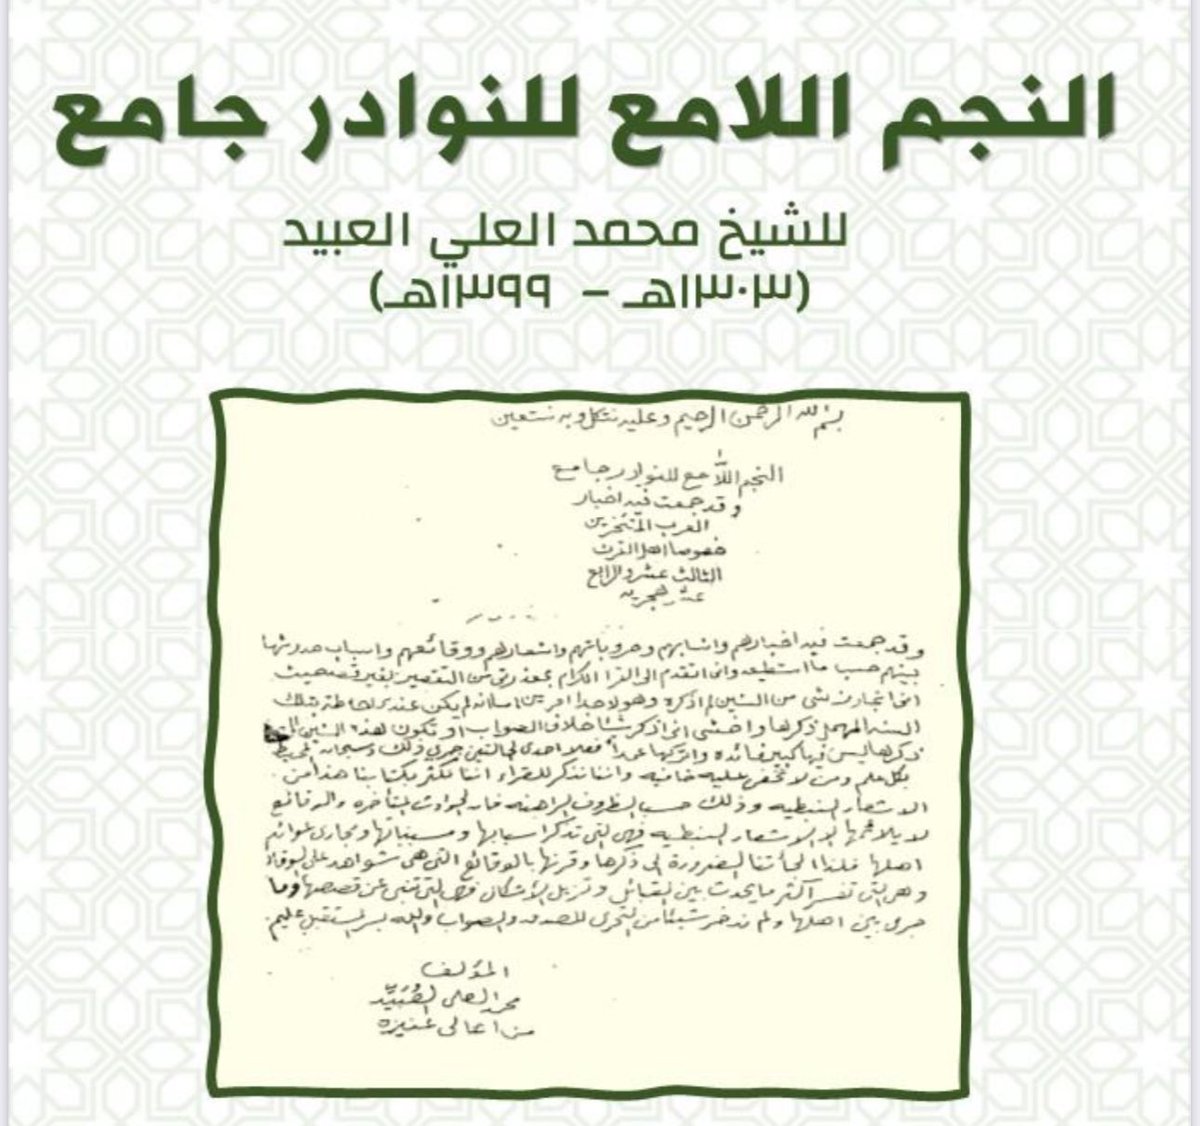 النجم اللامع للنوادر جامع
للشيخ محمد العلي العبيد
(١٣٠٣هـ – ١٣٩٩هـ)
بسم الله الرحمن الرحيم وعليه نتكل وبه نستعين
النجم اللامع للنوادر جامع
وقد جمعت فيه اخبار
العرب المتئخرين
خصوصا اهل القرن
الثالث عشر والرابع
عشر هجريه
وقد جمعت فيه اخبارهم وانسابهم وحروباتهم واشعارهم ووقائعهم واسباب حدوثها
بينهم حسب ما استطيعه وانى اتقدم الى القرا الكرام بمعذرتى من التقصير بغير قصد حيث
انى من السنين لم اذكره وهو لم يكن عندى احاطة بتلك
السنه المهمل ذكرها واخشى انى اذكر شئا خلاف الصواب او تكون هذه السنين التى
ذكرها ليس فيها كبير فائده واتركها عمدا فعلا جرى ذلك وسبحان المحيط
بكل علم ومن لا تخفى عليه خافيه واننا نذكر للقراء اننا نكثر بكتابنا هذا من
الاشعار النبطيه وذلك حسب الظروف الراهنه فان الحوادث المتأخره والوقائع
لا يلائمها الا الاشعار النبطيه فهى التى تذكر اسبابها ومسبباتها ومجارى عوائم
اهلها فلذا الجأتنا الضرورة الى ذكرها وقرنها بالوقائع التى هى شواهد على
وهى التى تفسر اكثر ما يحدث بين القبائل وتزيل الاشكال فهى التى تنبى عن قصصها وما
جرى بين اهلها ولم ندخر شيئا من التحرى للصدق والصواب والله بسر المستقبل عليم
المؤلف
محمد العلى العبيد
من اهالى عنيزه